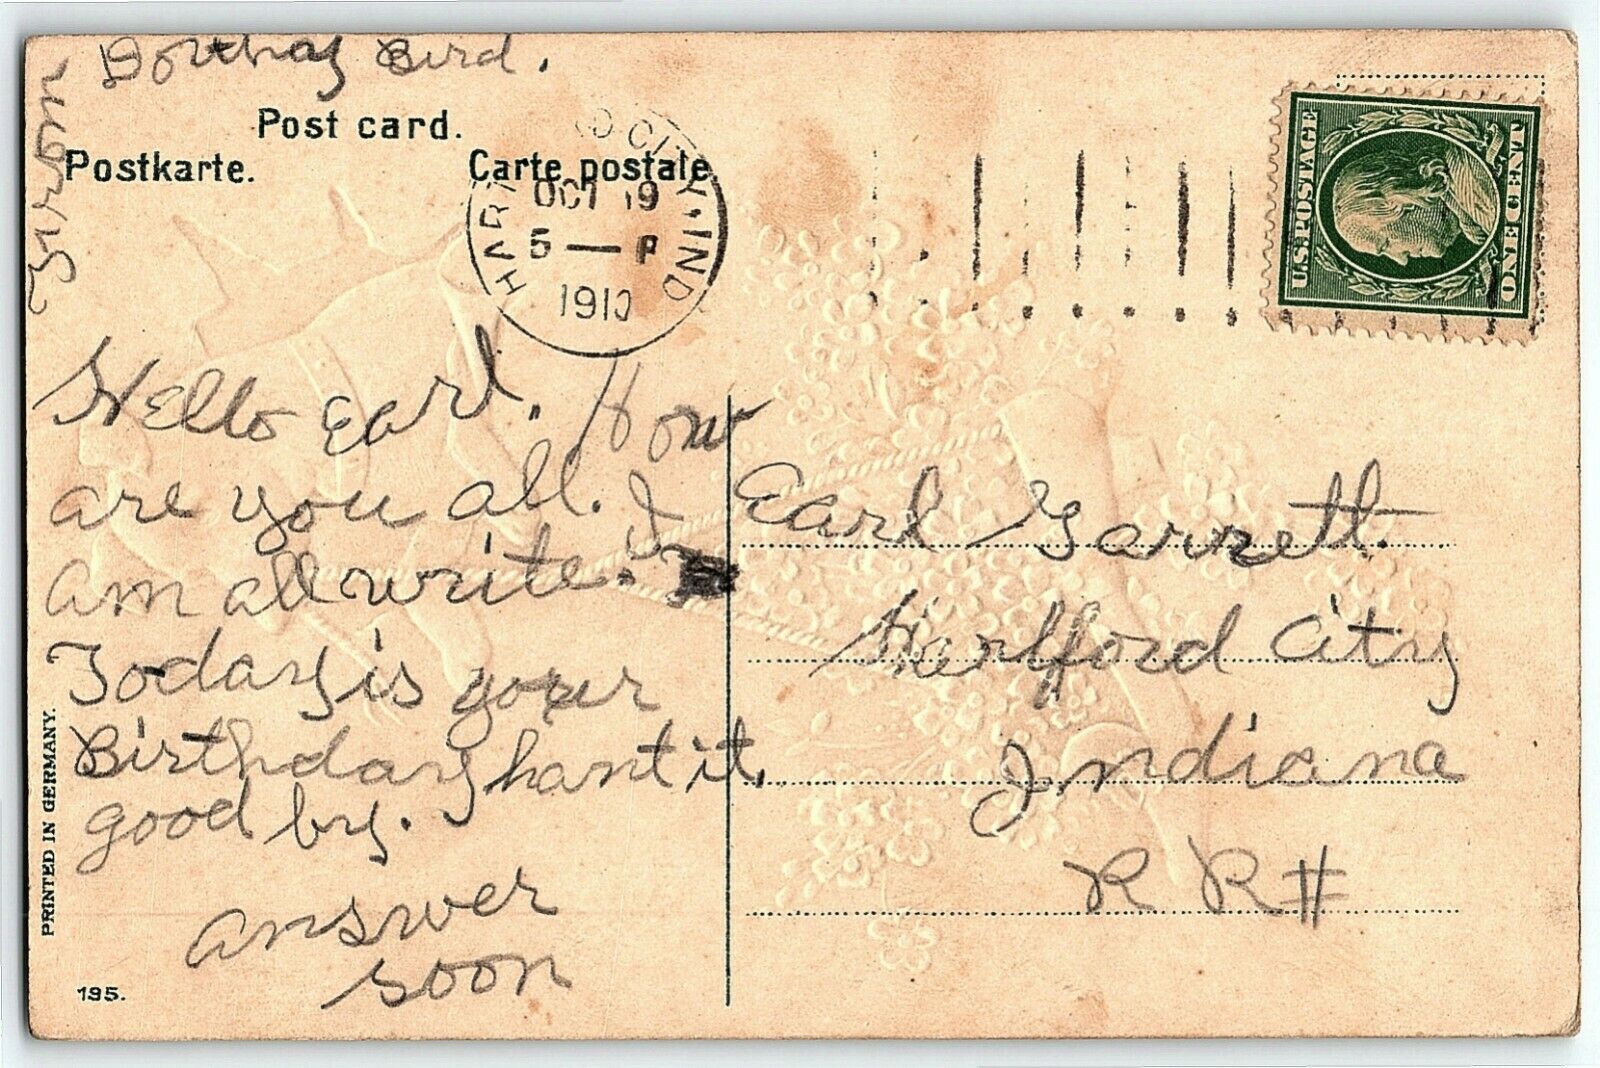 From
Dorthay Bird.
Post card.
Postkarte. Carte postale
HAR RD CITY. IND
OCT 19
5 — P
1910
U.S. POSTAGE
ONE CENT 1
Hello Earl. How
are you all. I
am all write.
Today is your
Birthday hant it.
good by.
answer
soon
Earl Garrett.
Hartford City
Indiana
R R #
PRINTED IN GERMANY.
195.